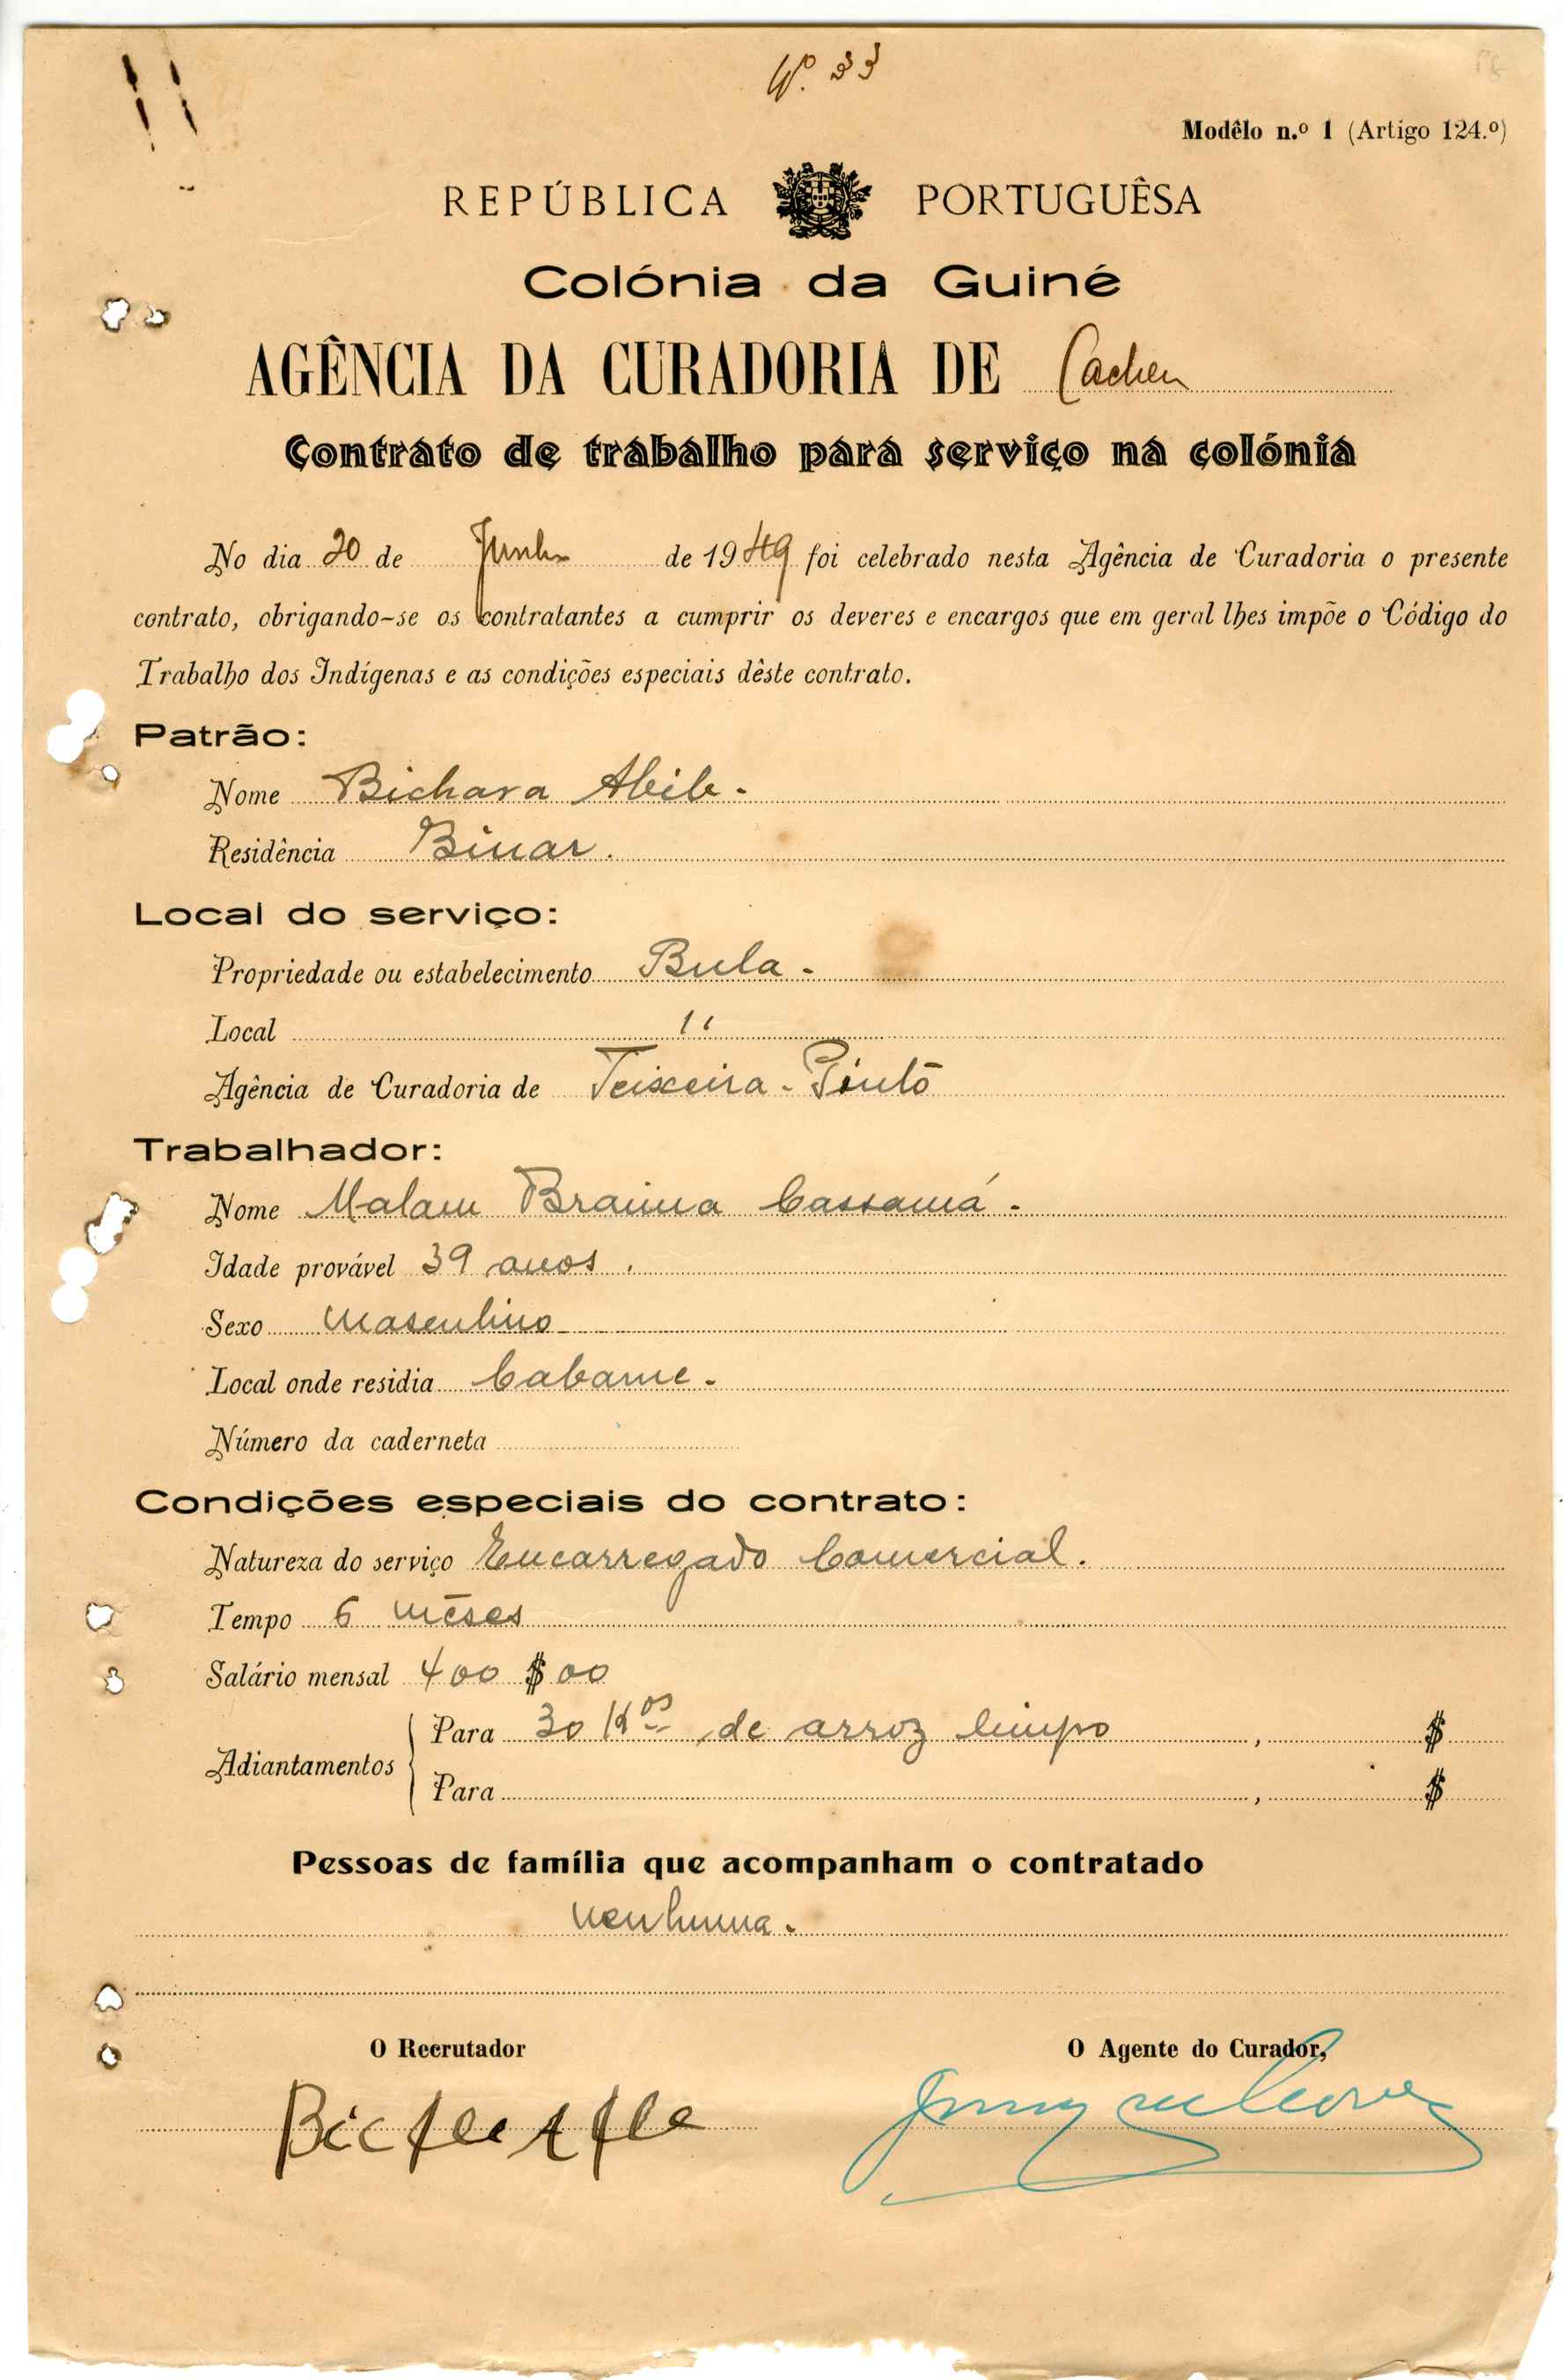 Nº. 33
Modêlo n.º 1 (Artigo 124.º)
REPÚBLICA PORTUGUÊSA
Colónia da Guiné
AGÊNCIA DA CURADORIA DE Cacheu
Contrato de trabalho para serviço na colónia
No dia 20 de Junho de 1949 foi celebrado nesta Agência de Curadoria o presente
contrato, obrigando-se os contratantes a cumprir os deveres e encargos que em geral lhes impõe o Código do
Trabalho dos Indígenas e as condições especiais dêste contrato.
Patrão:
Nome Bichara Abib.
Residência Binar.
Local do serviço:
Propriedade ou estabelecimento Bula -
Local "
Agência de Curadoria de Teixeira-Pinto
Trabalhador:
Nome Malam Braima Cassamá.
Idade provável 39 anos.
Sexo Masculino
Local onde residia Cabame.
Número da caderneta
Condições especiais do contrato:
Natureza do serviço Encarregado Comercial.
Tempo 6 mêses
Salário mensal 400$00
Adiantamentos
Para 30 Kos de arroz limpo , $
Para , $
Pessoas de família que acompanham o contratado
nenhuma.
O Recrutador O Agente do Curador,